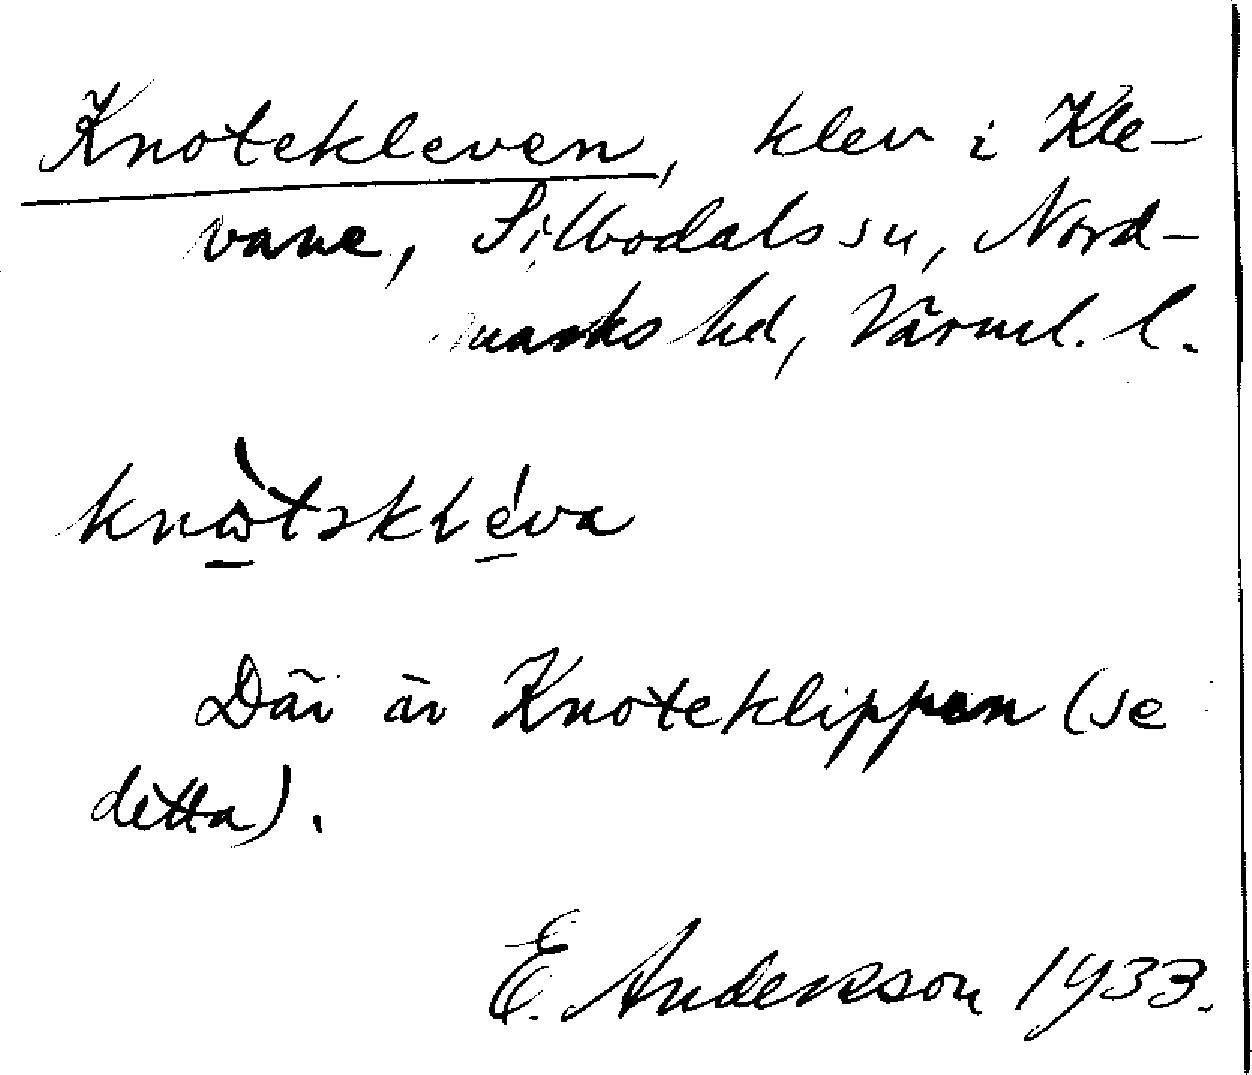 Knotekleven, klev i Kle-
vane, Silbodals sn, Nord-
marks hd, Värml. l.
Där är Knoteklippen (se
detta).
E. Andersson 1933.